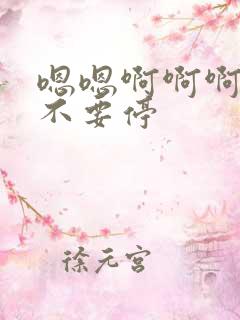 嗯嗯啊啊啊
不要停
徐元宫